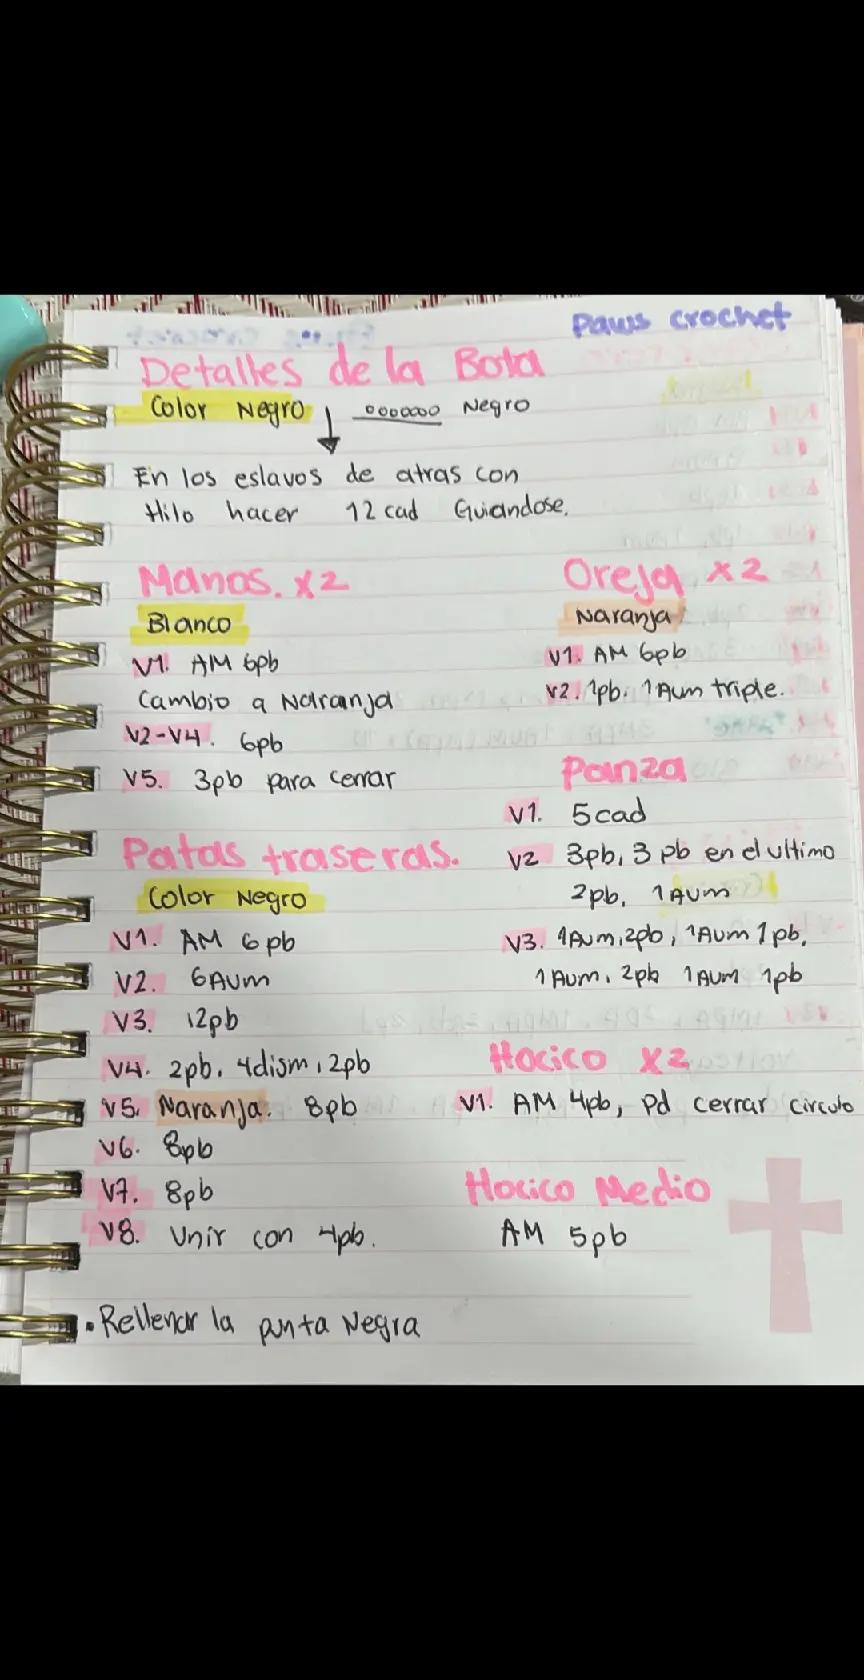 Paws crochet
Detalles de la Bota
Color Negro ↓ oooooo Negro
En los eslavos de atras con
Hilo hacer 12 cad Guiandose.
Manos. x2
Blanco
V1. AM 6pb
Cambio a Naranja
V2-V4. 6pb
V5. 3pb para cerrar
Oreja x2
Naranja
V1. AM 6pb
V2. 1pb. 1Aum triple.
Panza
V1. 5cad
V2 3pb, 3 pb en el ultimo
2pb, 1Aum
V3. 1Aum, 2pb, 1Aum 1pb,
1Aum, 2pb 1Aum 1pb
Patas traseras.
Color Negro
V1. AM 6pb
V2. 6Aum
V3. 12pb
V4. 2pb. 4dism, 2pb
V5. Naranja. 8pb
V6. 8pb
V7. 8pb
V8. Unir con 4pb.
• Rellenar la punta Negra
Hocico x2
V1. AM 4pb, Pd cerrar circulo
Hocico Medio
AM 5pb